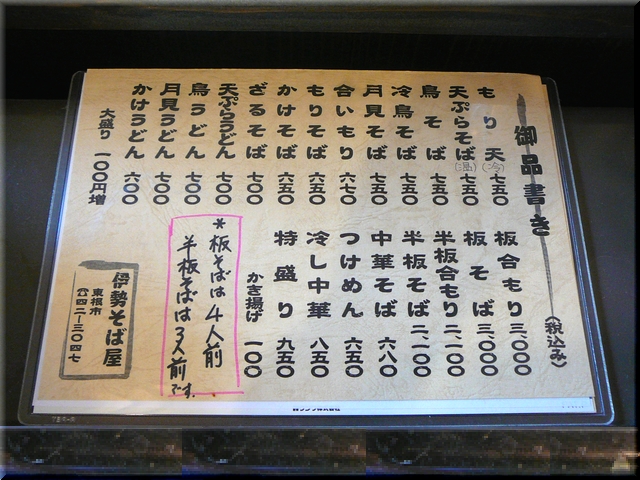 御品書き
(税込み)
もり天 七五〇
(冷)
天ぷらそば 七五〇
(温)
鳥そば 七五〇
冷鳥そば 七五〇
月見そば 七五〇
合いもり 六七〇
もりそば 六五〇
かけそば 六五〇
ざるそば 七〇〇
天ぷらうどん 七〇〇
鳥うどん 七〇〇
月見うどん 七〇〇
かけうどん 六〇〇
大盛り 一〇〇円増
板合もり 三、〇〇〇
板そば 三、〇〇〇
半板合もり 二、一〇〇
半板そば 二、一〇〇
中華そば 六八〇
つけめん 六五〇
冷し中華 八五〇
特盛り 九五〇
かき揚げ 一〇〇
*板そばは4人前
半板そばは3人前です。
伊勢そば屋
東根市
☎四二ー三〇四七